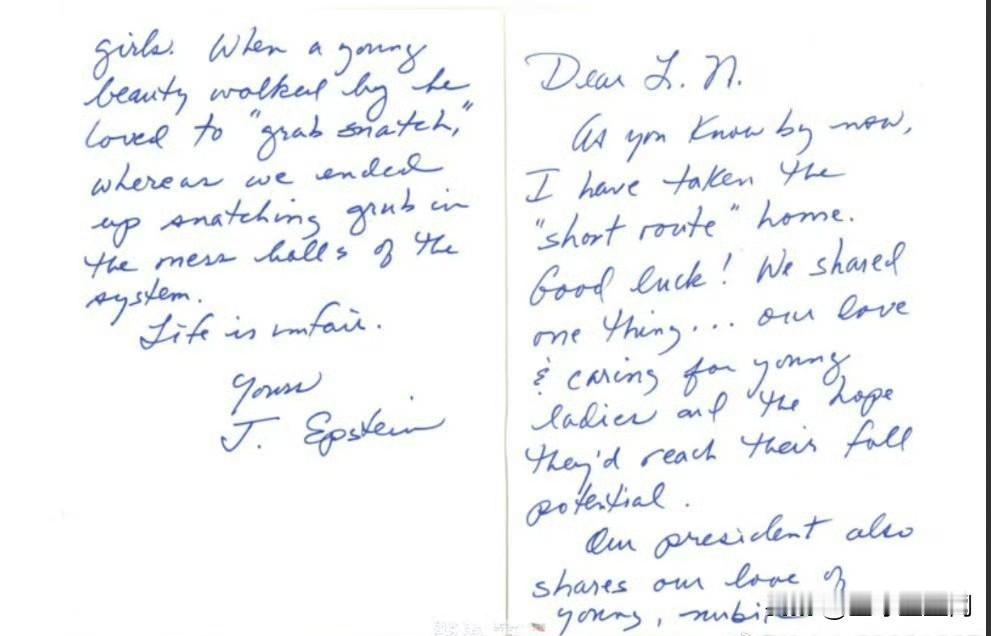 Dear L. N.
As you know by now,
I have taken the
"short route" home.
Good luck! We shared
one thing... our love
& caring for young
ladies and the hope
they'd reach their full
potential.
Our president also
shares our love of
young,
girls. When a young
beauty walked by he
loved to "grab snatch,"
whereas we ended
up snatching grub in
the mess halls of the
system.
Life is unfair.
Yours
J. Epstein